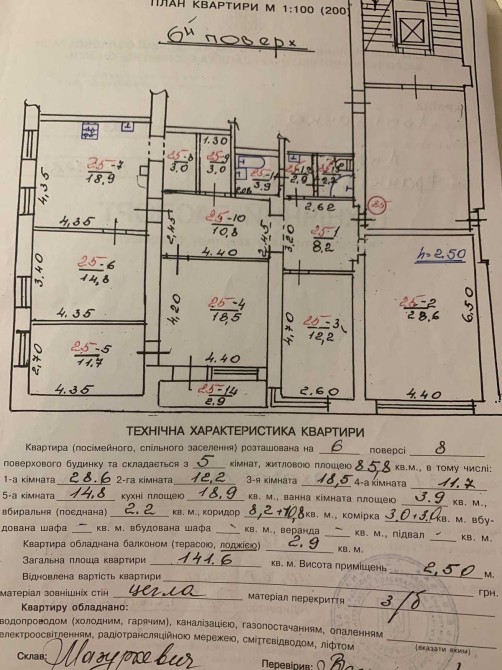 ПЛАН КВАРТИРИ М 1:100 (200)
6й поверх
25-7
18,9
4,35
4,35
25-8
3,0
1.30
25-9
3,0
3.9
2,9
2.62
25-10
10,8
2,45
4.40
2.45
3,20
25-1
8,2
25
h=2.50
3,40
25-6
14,8
4.35
4,20
25-4
18,5
4.40
25-2
28,6
6,50
4.40
2,70
25-5
11,7
4.35
4,70
25-3
12,2
2,60
25-14
2.9
ТЕХНІЧНА ХАРАКТЕРИСТИКА КВАРТИРИ
Квартира (посімейного, спільного заселення) розташована на 6 поверсі 8
поверхового будинку та складається з 5 кімнат, житловою площею 85,8 кв.м., в тому числі:
1-а кімната 28.6 2-га кімната 12,2 3-я кімната 18,5 4-а кімната 11.7
5-а кімната 14,8 кухні площею 18,9 кв. м., ванна кімната площею 3.9 кв. м.,
вбиральня (поєднана) 2.2 кв. м., коридор 8,2+10,8 кв. м., комірка 3.0+3.0 кв. м. вбу-
дована шафа - кв. м. вбудована шафа - кв. м., веранда - кв. м., підвал - кв. м.
Квартира обладнана балконом (терасою, лоджією) 2.9 кв. м.
Загальна площа квартири 141.6 кв. м. Висота приміщень 2,50 м.
Відновлена вартість квартири грн.
матеріал зовнішніх стін цегла матеріал перекриття з/б
Квартиру обладнано:
водопроводом (холодним, гарячим), каналізацією, газопостачанням, опаленням
(вказати яким)
електроосвітленням, радіотрансляційною мережею, сміттєвідводом, ліфтом
Склав: Мазуркевич Перевірив: